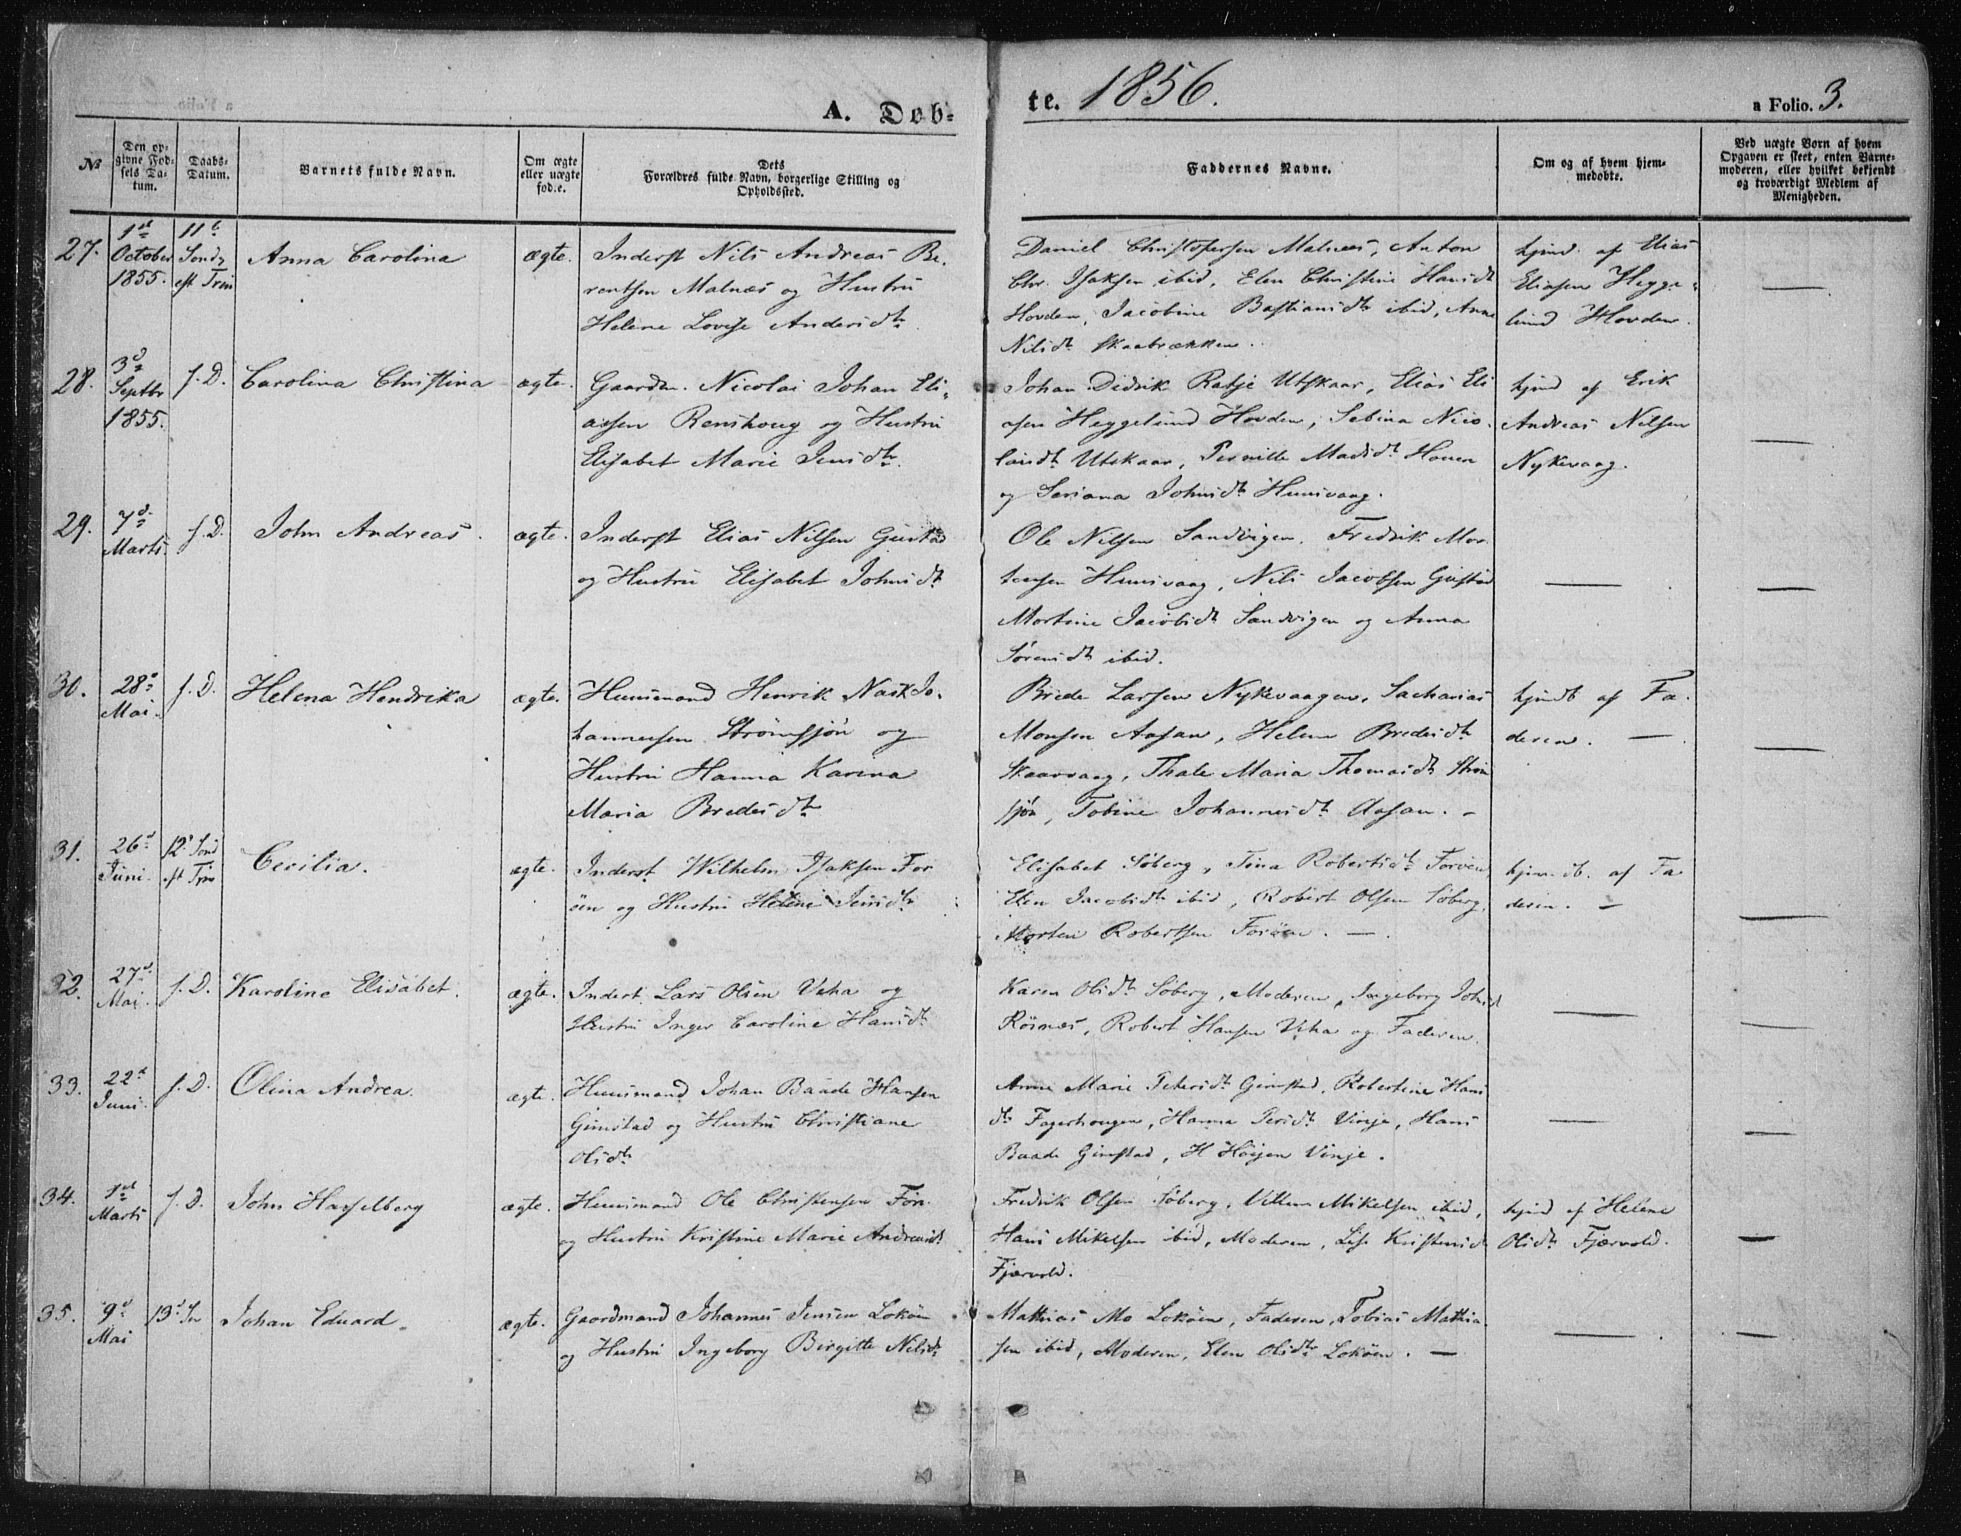 A. Döb-
te. 1856.
a Folio. 3.
No
Den op-
givne Föd-
sels Da-
tum.
Daabs-
Datum.
Barnets fulde Navn.
Om ægte
eller uægte
föd.e.
Dets
Forældres fulde Navn, borgerlige Stilling og
Opholdssted.
Faddernes Navne.
Om og af hvem hjem-
medöbte.
Ved uægte Børn af hvem
Opgaven er skeet, enten Barne-
moderen, eller hvilket bekjendt
og troværdigt Medlem af
Menigheden.
27.
1st
October
1855.
11t
Sond
eft Trin
Anna Carolina
ægte.
Inderst Nils Andreas Be-
rentsen Malnæs og Hustru
Helene Lovise Andersdtr
Daniel Christophersen Malnæs, Anton
Chr. Isaksen ibid, Elen Christine Hansdt
Hovden, Jacobine Bastiansdtr ibid, Anne
Nilsdt. Skaabrækken.
hjmd. af Elias
Eliasen Hegge-
lund Hovden.
28.
3d
Septbr
1855.
f. D.
Carolina Christina
ægte.
Gaardm. Nicolai Johan Eli-
assen Renshoug og Hustru
Elisabet Marie Jensdtr.
Johan Didrik Ratje Utskaar, Elias Eli
asen Heggelund Hovden, Sebina Nico-
laisdt. Utskaar, Pernille Madsdt. Hauen
og Seriana Johnsdt. Hunsvaag.
hjmd af Erik
Andreas Nilsen
Nykevaag.
29.
7d
Marts
f. D.
John Andreas.
ægte.
Inderst Elias Nilsen Gustad
og Hustru Elisabet Johnsdt.
Ole Nilsen Sandvigen, Fredrik Mor
tensen Hunsvaag, Nils Jacobsen Gustad
Mortine Jacobsdt. Sandvigen og Anna
Sørensdt. ibid.
30.
28d
Mai.
f. D.
Helena Hendrika
ægte.
Huusmand Henrik Nask Jo-
hannessen Strömssjön og
Hustru Hanna Karina
Maria Bredesdtr
Brede Larsen Nykevaagen, Sacharias
Monsen Aasan, Helene Bredesdt.
Skaarvaag, Thale Maria Thomasdt. Ström
sjön, Tobine Johannesdt. Aasan.
hjmdt af Fa-
deren.
31.
26d
Juni.
12' Sond
eft Trin
Cecilia.
ægte.
Inderst Wilhelm Isaksen For
öen og Hustru Helene Jensdtr.
Elisabet Söberg, Tina Robertsdt. Foröen,
Elen Jacobsdt. ibid, Robert Olsen Söberg,
Morten Robertsen Foröen.
hjmdb. af Fa
deren.
32.
27d
Mai.
f. D.
Karoline Elisabet.
ægte.
Inderst Lars Olsen Veha og
Hustru Inger Caroline Hansdt.
Karen Olsdt. Söberg, Moderen, Ingeborg Johnsd
Rösnæs, Robert Hansen Veha og Faderen.
33.
22d
Juni.
f. D.
Olina Andrea.
ægte.
Huusmand Johan Baade Hansen
Gimstad og Hustru Christiane
Olsdtr
Anne Marie Petersdt. Gimstad, Robertine Hans
dtr Fagerhougen, Hanna Persdt. Vinje, Hans
Baade Gimstad, H Höijen Vinje.
34.
1st
Marts
f. D.
John Hasselberg
ægte.
Huusmand Ole Christensen
og Hustru Kristine Marie Andreasdt.
Fredrik Olsen Söberg, Villum Mikelsen ibid,
Hans Mikelsen ibid, Moderen, Lise Kristensd
Fjærvold.
hjmd af Helene
Olsdt. Fjærvold.
35.
9d
Mai
13d Sn
Johan Eduard.
ægte.
Gaardmand Johannes Jensen Loköen
og Hustru Ingeborg Birgitte Nilsdt.
Mathias Mo Loköen, Faderen, Tobias Mathia-
sen ibid, Moderen, Elen Olsdtr Loköen.